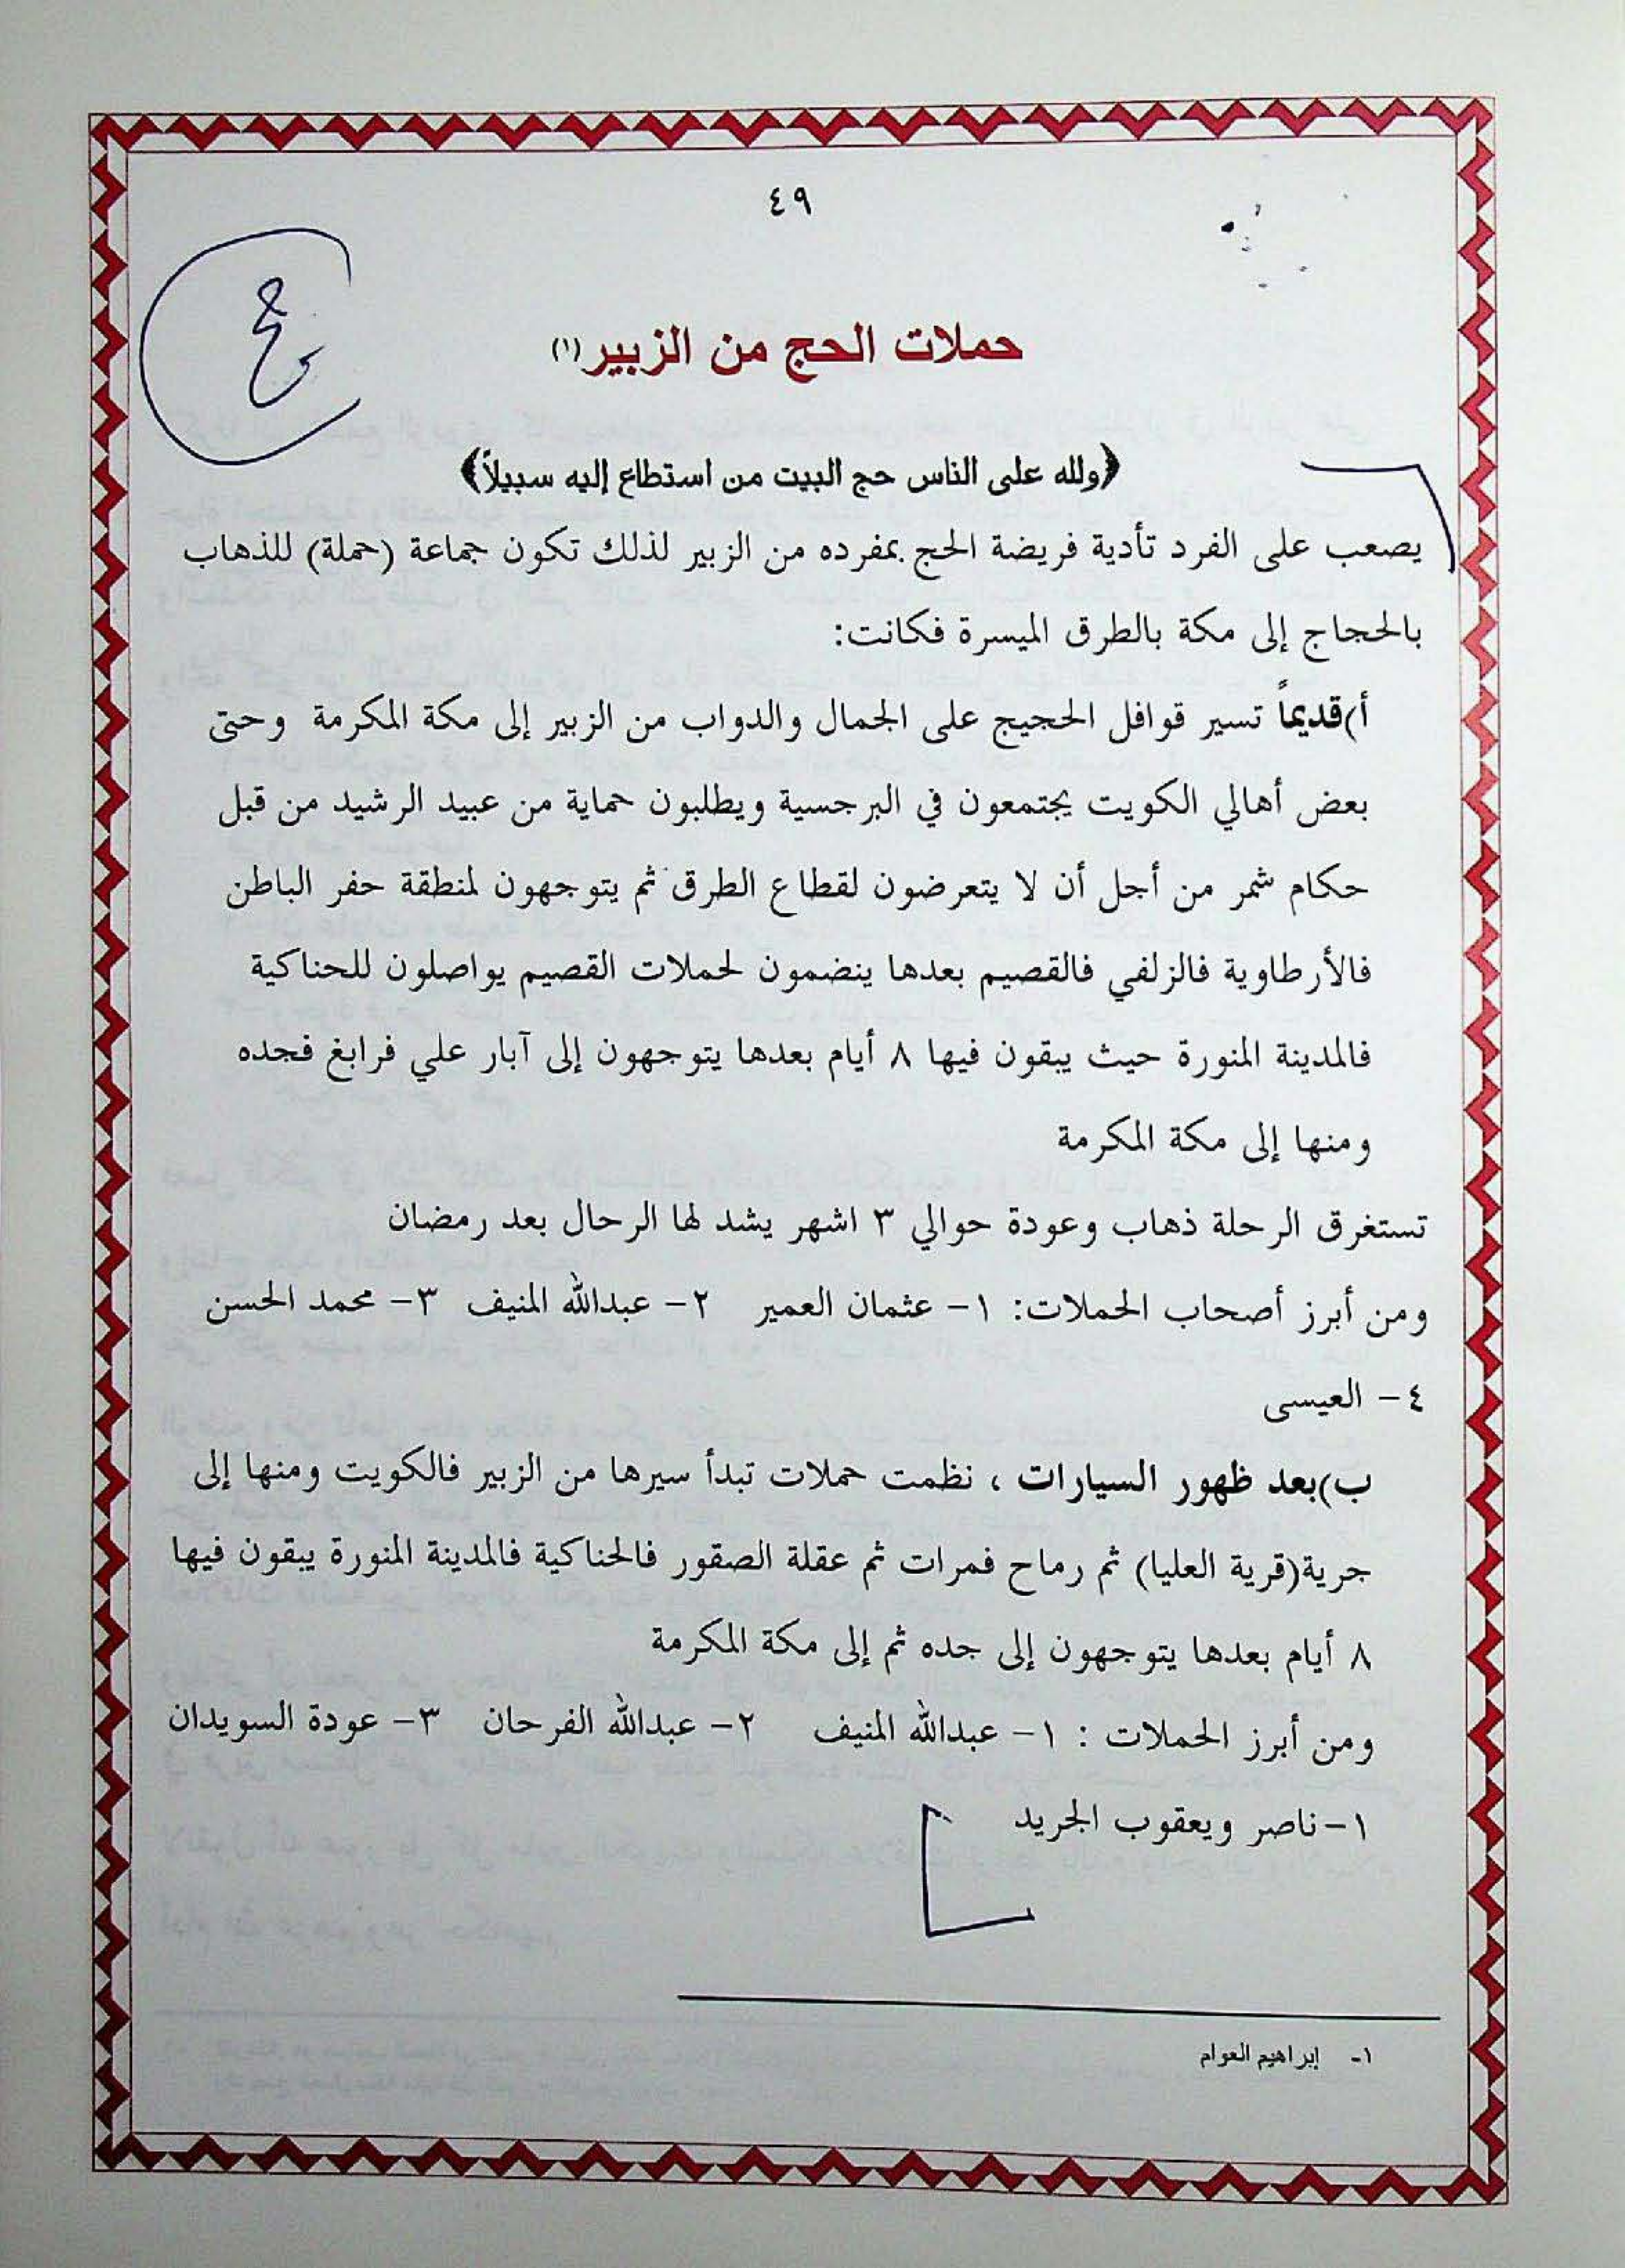 ٤٩
حملات الحج من الزبير(١)
﴿ولله على الناس حج البيت من استطاع إليه سبيلاً﴾
يصعب على الفرد تأدية فريضة الحج بمفرده من الزبير لذلك تكون جماعة (حملة) للذهاب
بالحجاج إلى مكة بالطرق الميسرة فكانت:
أ)قديماً تسير قوافل الحجيج على الجمال والدواب من الزبير إلى مكة المكرمة وحتى
بعض أهالي الكويت يجتمعون في البرجسية ويطلبون حماية من عبيد الرشيد من قبل
حكام شمر من أجل أن لا يتعرضون لقطاع الطرق ثم يتوجهون لمنطقة حفر الباطن
فالأرطاوية فالزلفي فالقصيم بعدها ينضمون لحملات القصيم يواصلون للحناكية
فالمدينة المنورة حيث يبقون فيها ٨ أيام بعدها يتوجهون إلى آبار علي فرابغ فجده
ومنها إلى مكة المكرمة
تستغرق الرحلة ذهاب وعودة حوالي ٣ اشهر يشد لها الرحال بعد رمضان
ومن أبرز أصحاب الحملات: ١- عثمان العمير ٢- عبدالله المنيف ٣- محمد الحسن
٤- العيسى
ب)بعد ظهور السيارات ، نظمت حملات تبدأ سيرها من الزبير فالكويت ومنها إلى
جرية(قرية العليا) ثم رماح فمرات ثم عقلة الصقور فالحناكية فالمدينة المنورة يبقون فيها
٨ أيام بعدها يتوجهون إلى جده ثم إلى مكة المكرمة
ومن أبرز الحملات : ١- عبدالله المنيف ٢- عبدالله الفرحان ٣- عودة السويدان
١-ناصر ويعقوب الجريد
١- إبراهيم العوام